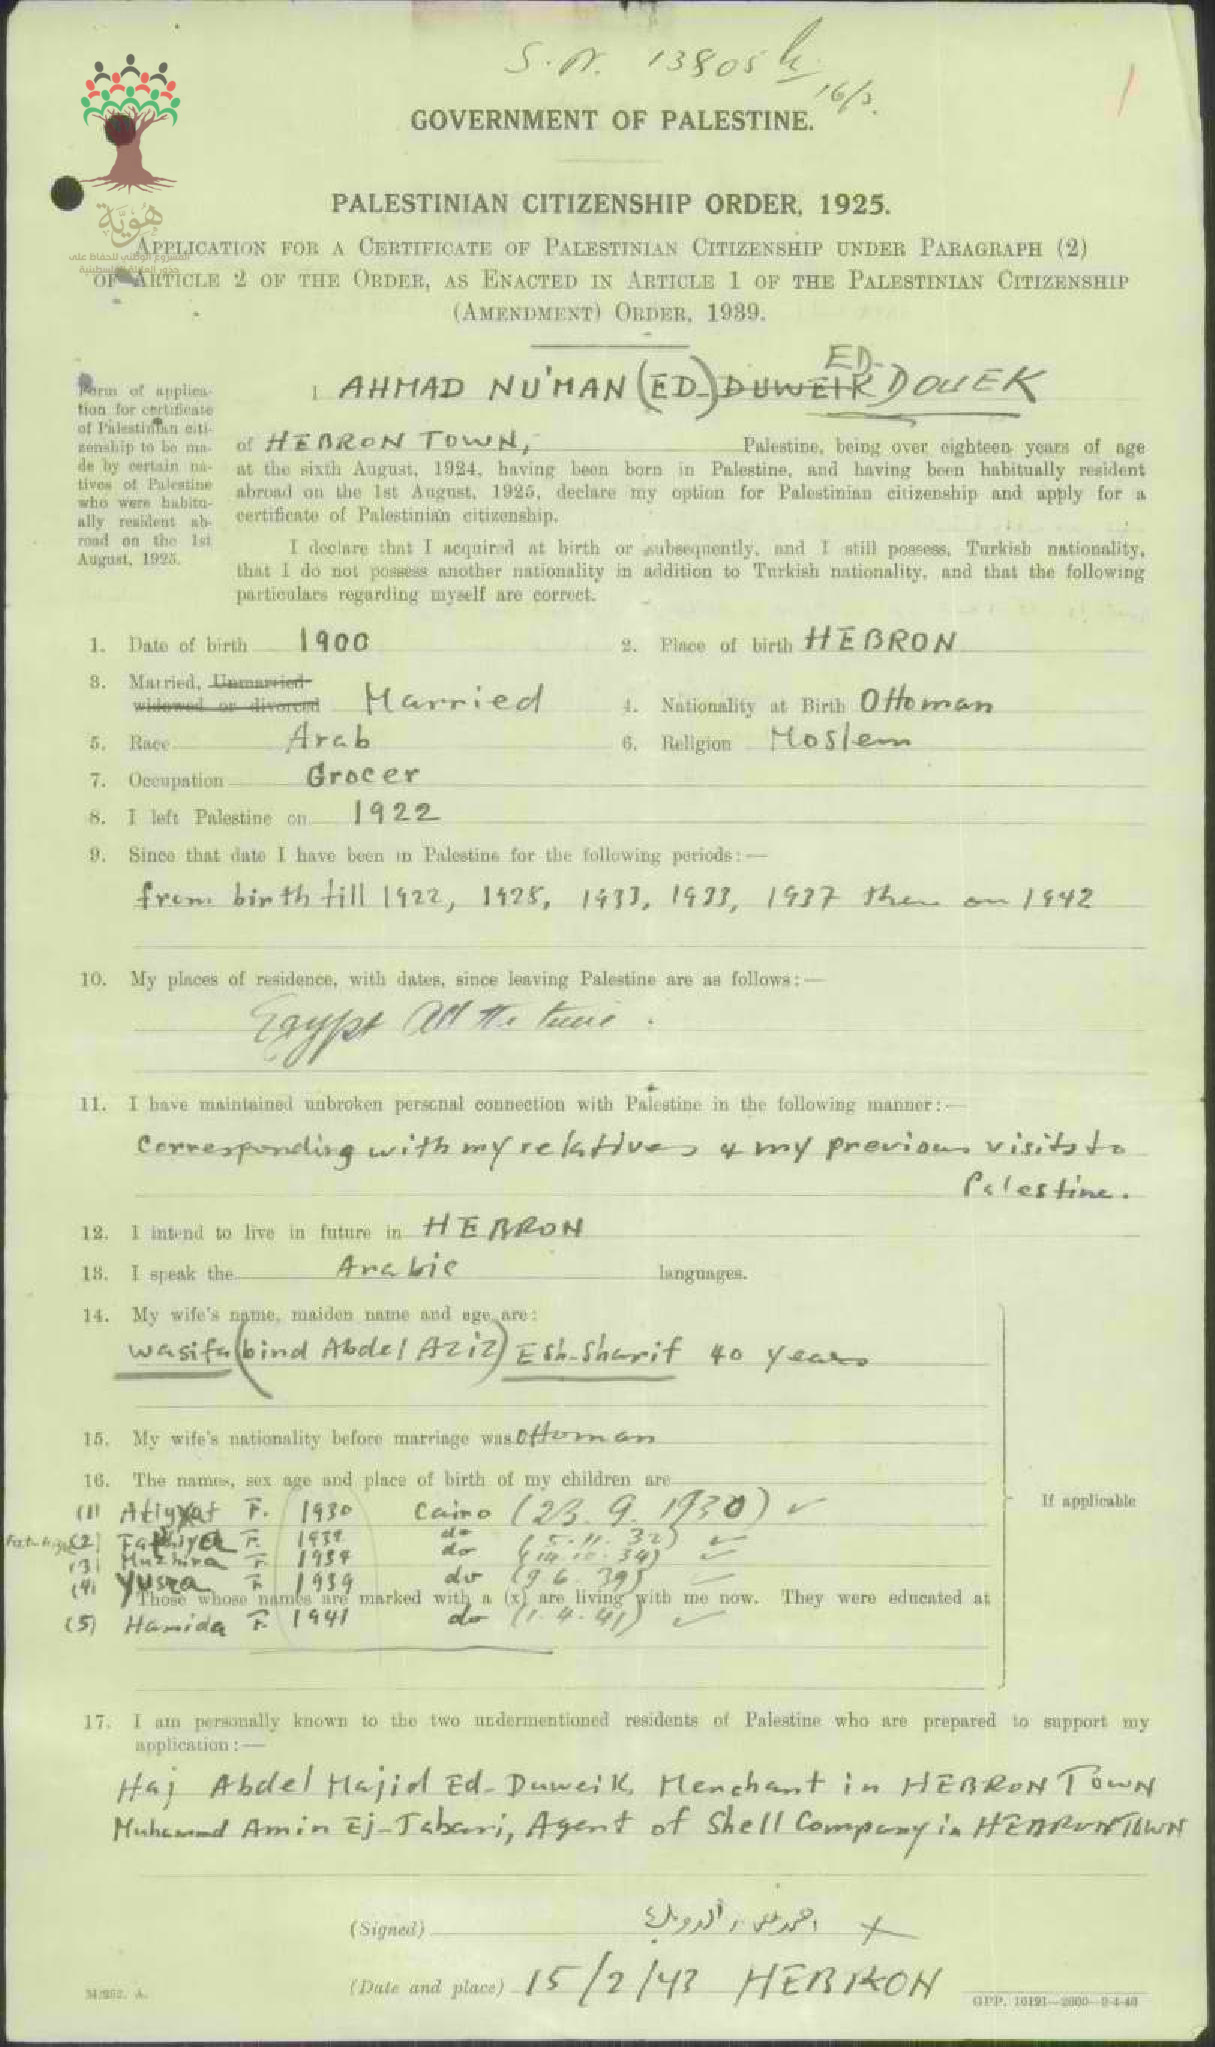 S. N. 13805
16/3.
GOVERNMENT OF PALESTINE.
PALESTINIAN CITIZENSHIP ORDER, 1925.
هُوِيَّة
المشروع الوطني للحفاظ على
جذور العائلة الفلسطينية
APPLICATION FOR A CERTIFICATE OF PALESTINIAN CITIZENSHIP UNDER PARAGRAPH (2)
OF ARTICLE 2 OF THE ORDER, AS ENACTED IN ARTICLE 1 OF THE PALESTINIAN CITIZENSHIP
(AMENDMENT) ORDER, 1939.
Form of applica-
tion for certificate
of Palestinian citi-
zenship to be ma-
de by certain na-
tives of Palestine
who were habitu-
ally resident ab-
road on the 1st
August, 1925.
ED-
I AHMAD NU'MAN (ED-) DUWEIK DOUEK
of HEBRON TOWN, Palestine, being over eighteen years of age
at the sixth August, 1924, having been born in Palestine, and having been habitually resident
abroad on the 1st August, 1925, declare my option for Palestinian citizenship and apply for a
certificate of Palestinian citizenship.
I declare that I acquired at birth or subsequently, and I still possess, Turkish nationality,
that I do not possess another nationality in addition to Turkish nationality, and that the following
particulars regarding myself are correct.
1. Date of birth 1900 2. Place of birth HEBRON
3. Married, Unmarried
widowed or divorced Married 4. Nationality at Birth Ottoman
5. Race Arab 6. Religion Moslem
7. Occupation Grocer
8. I left Palestine on 1922
9. Since that date I have been in Palestine for the following periods:—
from birth till 1922, 1928, 1933, 1933, 1937 then on 1942
10. My places of residence, with dates, since leaving Palestine are as follows:—
Egypt All the time.
11. I have maintained unbroken personal connection with Palestine in the following manner:—
Corresponding with my relatives & my previous visits to
Palestine.
12. I intend to live in future in HEBRON
13. I speak the Arabic languages.
14. My wife's name, maiden name and age are:
Wasifa (bind Abdel Aziz) Esh-Sharif 40 years
15. My wife's nationality before marriage was Ottoman
16. The names, sex age and place of birth of my children are
If applicable
(1) Atiyyat F. 1930 Cairo (23. 9. 1930)
(2) Fathiya F. 1932 do (5.11.32)
(3) Muzhira F. 1934 do (14.10.34)
(4) Yusra F 1939 do (9.6.39)
Those whose names are marked with a (x) are living with me now. They were educated at
(5) Hamida F. 1941 do (1.4.41)
17. I am personally known to the two undermentioned residents of Palestine who are prepared to support my
application:—
Haj Abdel Majid Ed-Duweik, Merchant in HEBRON TOWN
Muhammad Amin Ej-Jabari, Agent of Shell Company in HEBRON TOWN
(Signed) احمد نعمان الدويك X
(Date and place) 15/2/43 HEBRON
GPP. 16121—2600—9-4-46